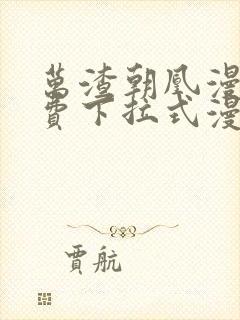 萬渣朝凰漫
費下拉式漫
賈航